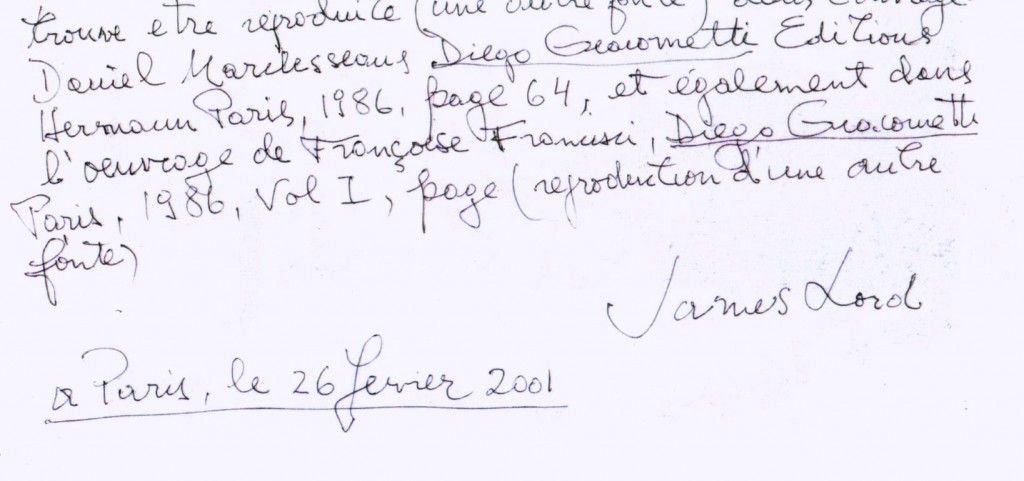 trouve etre reproduite (une autre fonte) dans l'ouvrage
Daniel Marchesseaus Diego Giacometti Editions
Hermann Paris, 1986, page 64, et également dans
l'oeuvrage de Françoise Francisci, Diego Giacometti
Paris, 1986, Vol I, page (reproduction d'une autre
fonte)
James Lord
a Paris, le 26 fevrier 2001